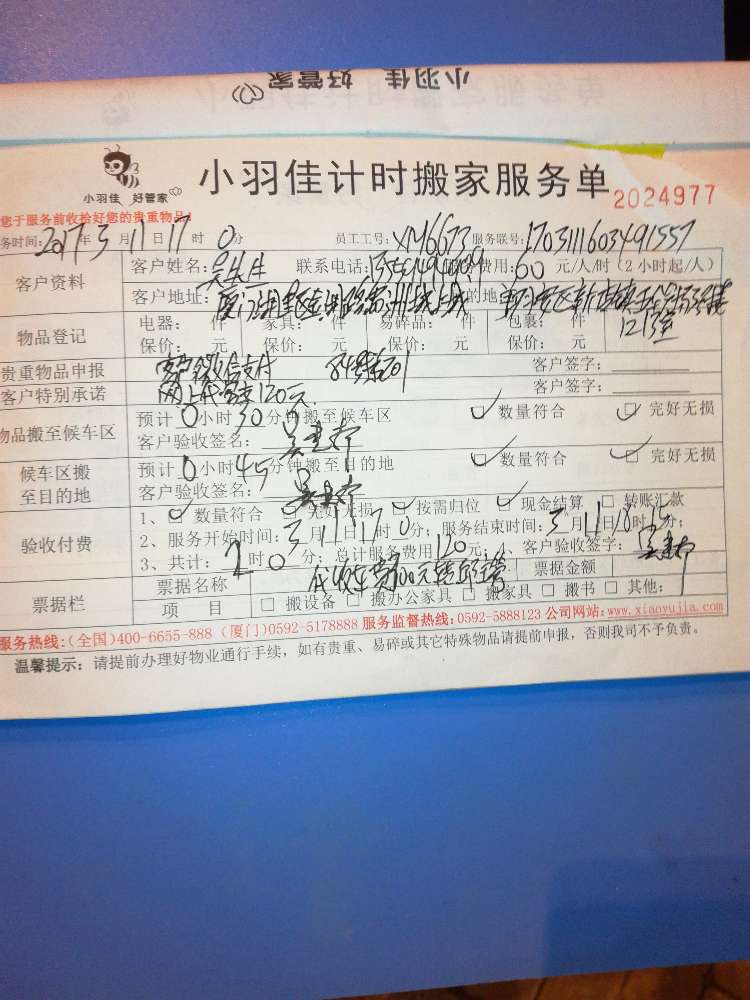 小羽佳 好管家
小羽佳 好管家
小羽佳计时搬家服务单 2024977
您于服务前收拾好您的贵重物品!
务时间:2017年3月11日17时0分 员工工号:XM6673 服务联号:1703111603491557
客户资料 客户姓名:吴先生 联系电话: 服务费用:60元/人/时(2小时起/人)
客户地址:厦门 的地
物品登记 电器: 件 家具: 件 易碎品: 件 包裹: 件
保价: 元 保价: 元 保价: 元 保价: 元
贵重物品申报 客户微信支付 客户签字:
客户特别承诺 网上 120元 客户签字:
物品搬至候车区 预计0小时30分钟搬至候车区 数量符合 完好无损
客户验收签名:
候车区搬至目的地 预计0小时45分钟搬至目的地 数量符合 完好无损
客户验收签名:
验收付费 1、数量符合 完好无损 按需归位 现金结算 转账汇款
2、服务开始时间:3月11日17时0分;服务结束时间:3月11日
3、共计:2时0分;总计服务费用120元;4、客户验收签字:
票据栏 票据名称 代收车费 票据金额
项 目 搬设备 搬办公家具 搬家具 搬书 其他:
服务热线:(全国)400-6655-888 (厦门)0592-5178888 服务监督热线:0592-5888123 公司网站:www.xiaoyujia.com
温馨提示:请提前办理好物业通行手续,如有贵重、易碎或其它特殊物品请提前申报,否则我司不予负责。